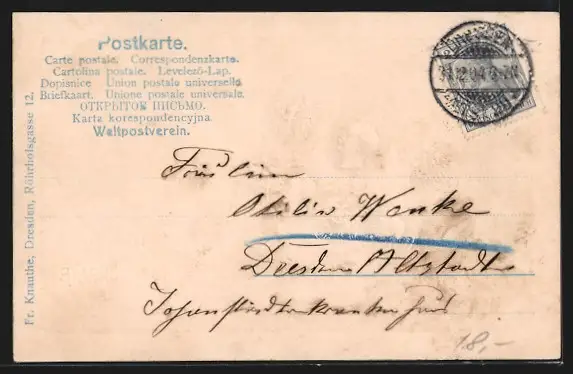 Postkarte.
Carte postale. Correspondenzkarte.
Cartolina postale. Levelező-Lap.
Dopisnice Union postale universelle
Briefkaart. Unione postale universale.
ОТКРЫТОЕ ПИСЬМО.
Karta korespondencyjna.
Weltpostverein.
Fr. Knauthe, Dresden, Röhrhofsgasse 12.
Fräulein
Wenke
Dresden Altstadt
18,-